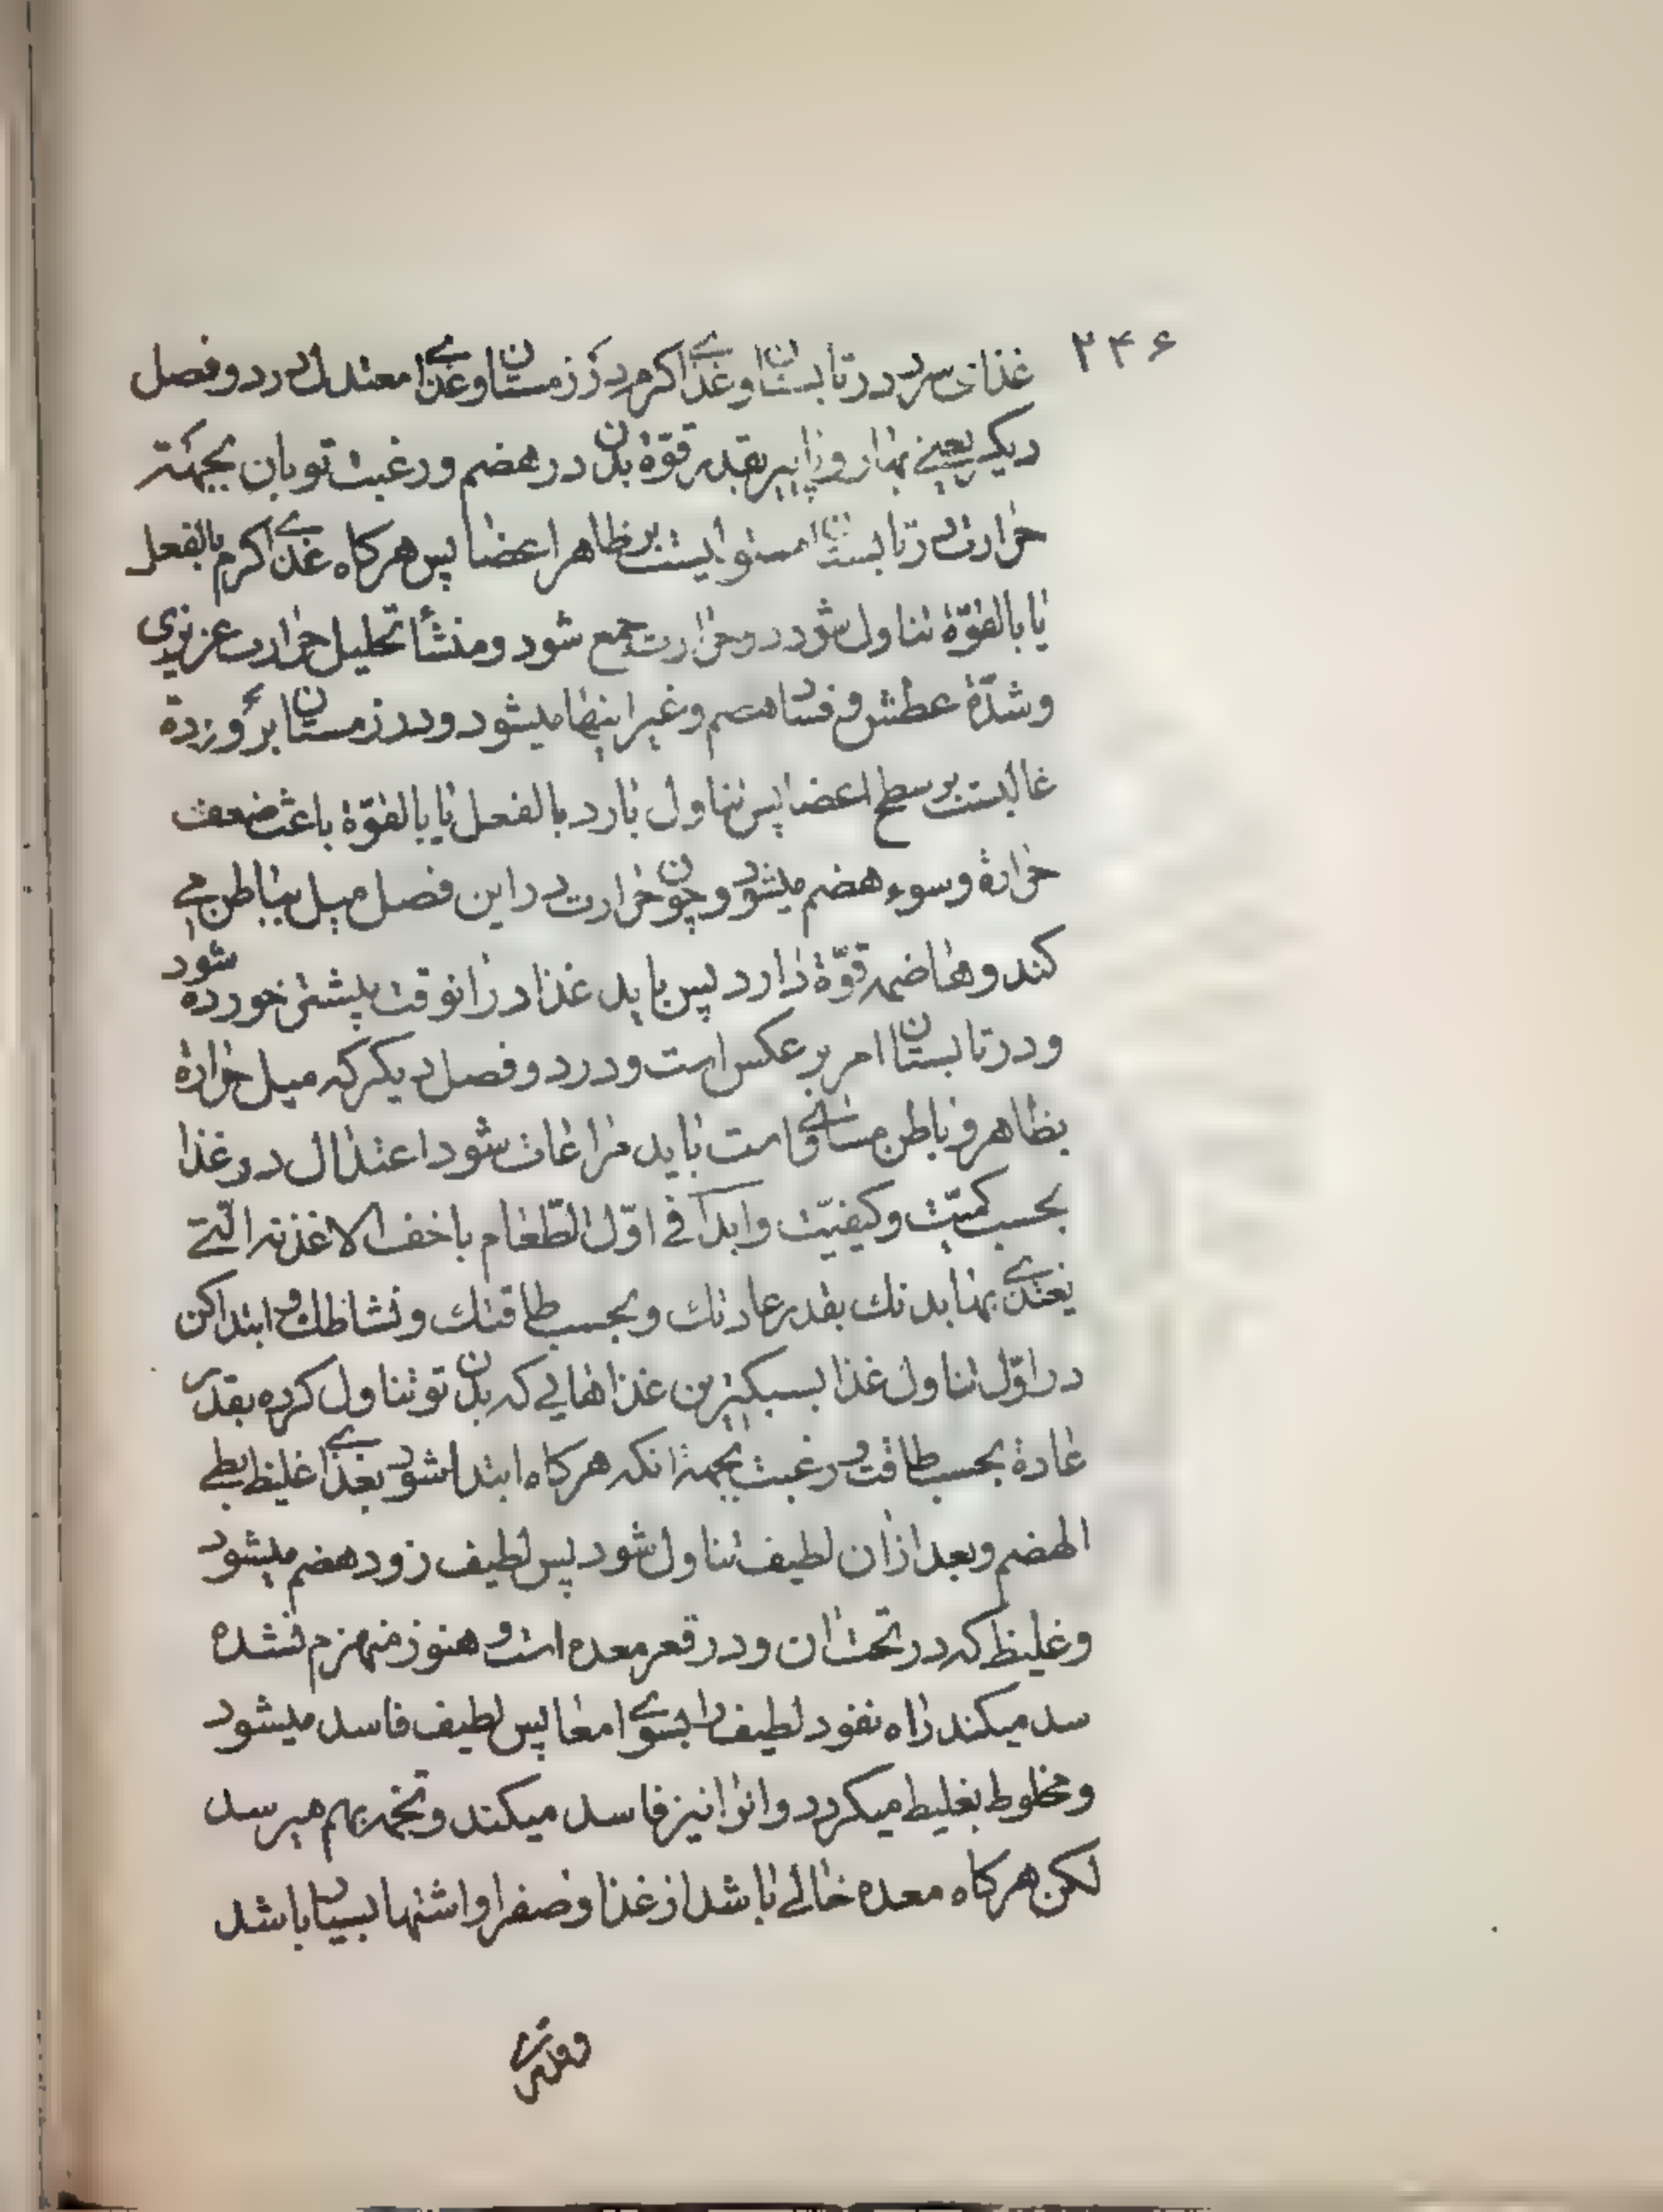 ۲۴۶
غذای سرد در تابستان و غذای کرم در زمستان و غذای معتدل در دو فصل
دیکر یعنی بهار و پاییز بقدر قوّة بدن در هضم و رغبت تو بان بجهة
حرارت در تابستان مستولیست بر ظاهر اعضا پس هرکاه غذای کرم بالفعل
یا بالقوّة تناول شود دو حرارت جمع شود و منشأ تحلیل حرارت عزیزی
و شدّة عطش و فساد هضم و غیر اینها میشود و در زمستان برودة
غالبست بر سطح اعضا پس تناول بارد بالفعل یا بالقوّة باعث ضعف
حرارة و سوء هضم میشود و چون حرارت در این فصل میل بباطن می
کند و هاضمه قوّة دارد پس باید غذا در انوقت پیشتر خورده شود
و در تابستان امر بر عکس است و در دو فصل دیکر که میل حرارة
بظاهر و باطن مساوی است باید مراعات شود اعتدال در غذا
بحسب کمیّت و کیفیّت وابدأ فی اوّل الطّعام باخف الاغذیه الّتی
یغتذی بها بدنك بقدر عادتك و بحسب طاقتك و نشاطك و ابتدا کن
در اوّل تناول غذا بسبکترین غذاهایی که بدن تو تناول کرده بقدر
عادة بحسب طاقت و رغبت بجهة انکه هرکاه ابتدا شود بغذای غلیظ بطی
الهضم و بعد از ان لطیف تناول شود پس لطیف زود هضم میشود
و غلیظ که در تحت ان و در قعر معده است و هنوز منهزم نشده
سد میکند راه نفود لطیف را بسوی امعا پس لطیف فاسد میشود
و مخلوط بغلیط میکردد و انرا نیز فاسد میکند و تخمه بهم میرسد
لکن هرکاه معده خالی باشد از غذا و صفرا و اشتها بسیار باشد